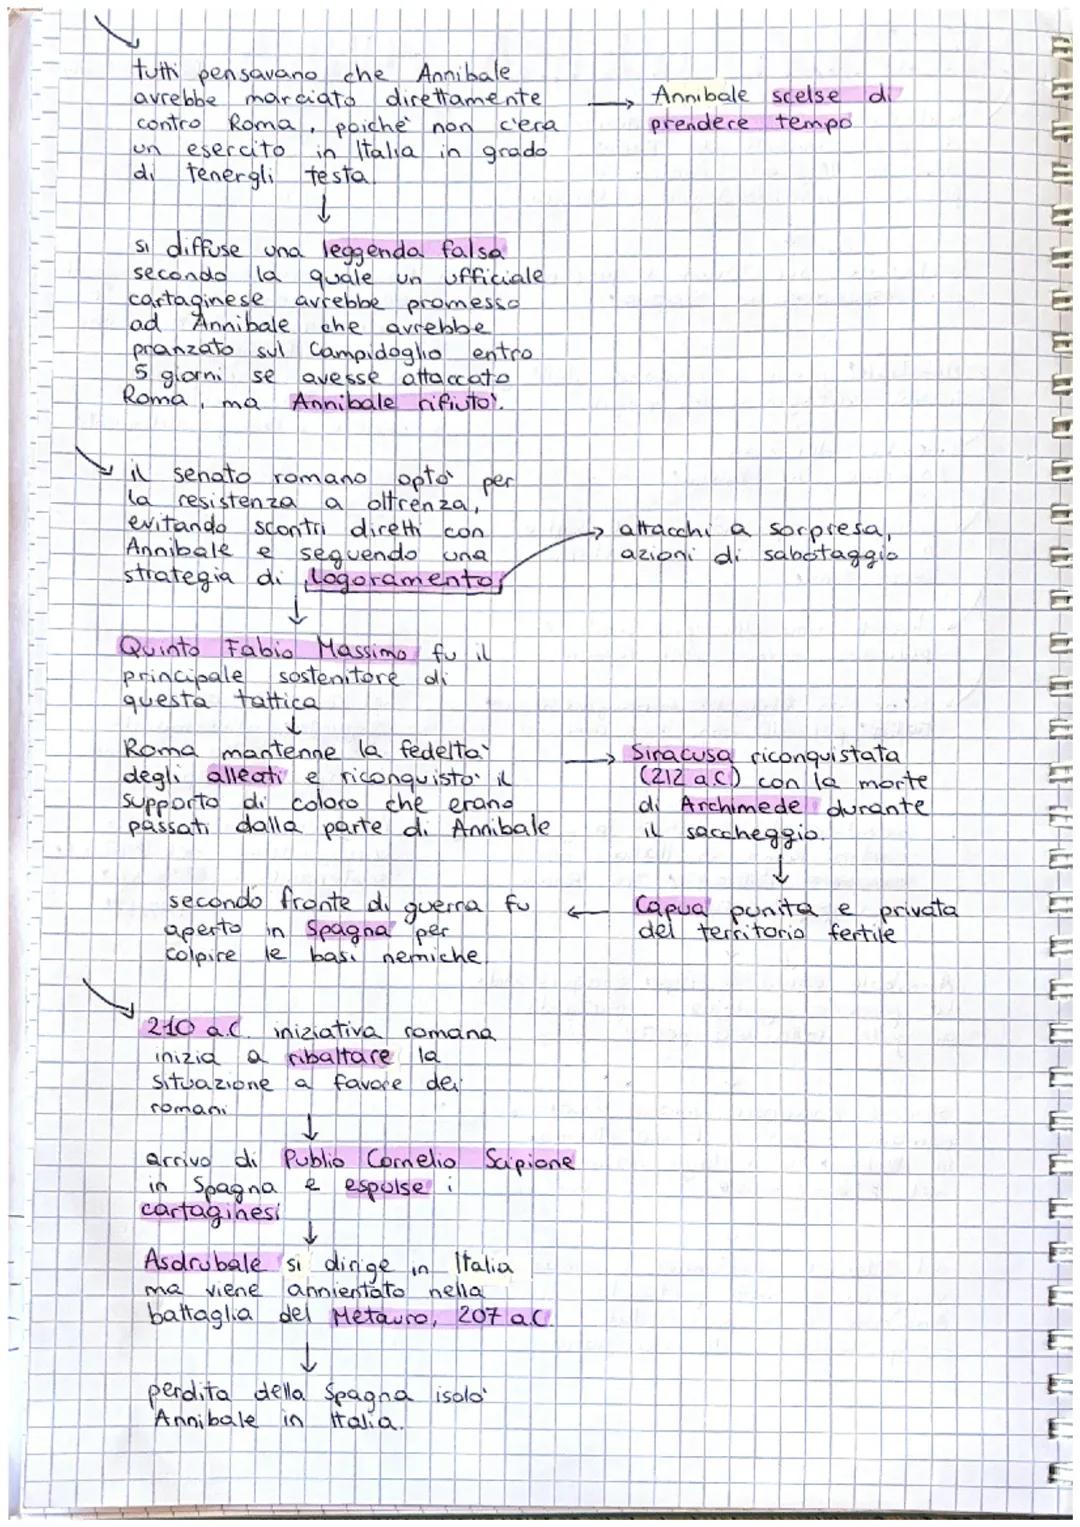 tutti pensavano che Annibale
avrebbe marciato direttamente
contro Roma, poichè non c'era
un esercito in Italia in grado
di tenergli testa.
→ Annibale scelse di
prendere tempo
↓
si diffuse una leggenda falsa
secondo la quale un ufficiale
cartaginese avrebbe promesso
ad Annibale che avrebbe
pranzato sul Campidoglio entro
5 giorni se avesse attaccato
Roma, ma Annibale rifiutò.
il senato romano optò per
la resistenza a oltrenza,
evitando scontri diretti con
Annibale e seguendo una
strategia di logoramento
→ attacchi a sorpresa,
azioni di sabotaggio
↓
Quinto Fabio Massimo fu il
principale sostenitore di
questa tattica
↓
Roma mantenne la fedeltà
degli alleati e riconquistò il
supporto di coloro che erano
passati dalla parte di Annibale
→ Siracusa riconquistata
(212 a.C) con la morte
di Archimede durante
il saccheggio.
↓
Capua punita e privata
del territorio fertile
←
secondo fronte di guerra fu
aperto in Spagna per
colpire le basi nemiche
210 a.C. iniziativa romana
inizia a ribaltare la
situazione a favore dei
romani
↓
arrivo di Publio Cornelio Scipione
in Spagna e espulse i
cartaginesi
↓
Asdrubale si dirige in Italia
ma viene annientato nella
battaglia del Metauro, 207 a.C.
↓
perdita della Spagna isolò
Annibale in Italia.